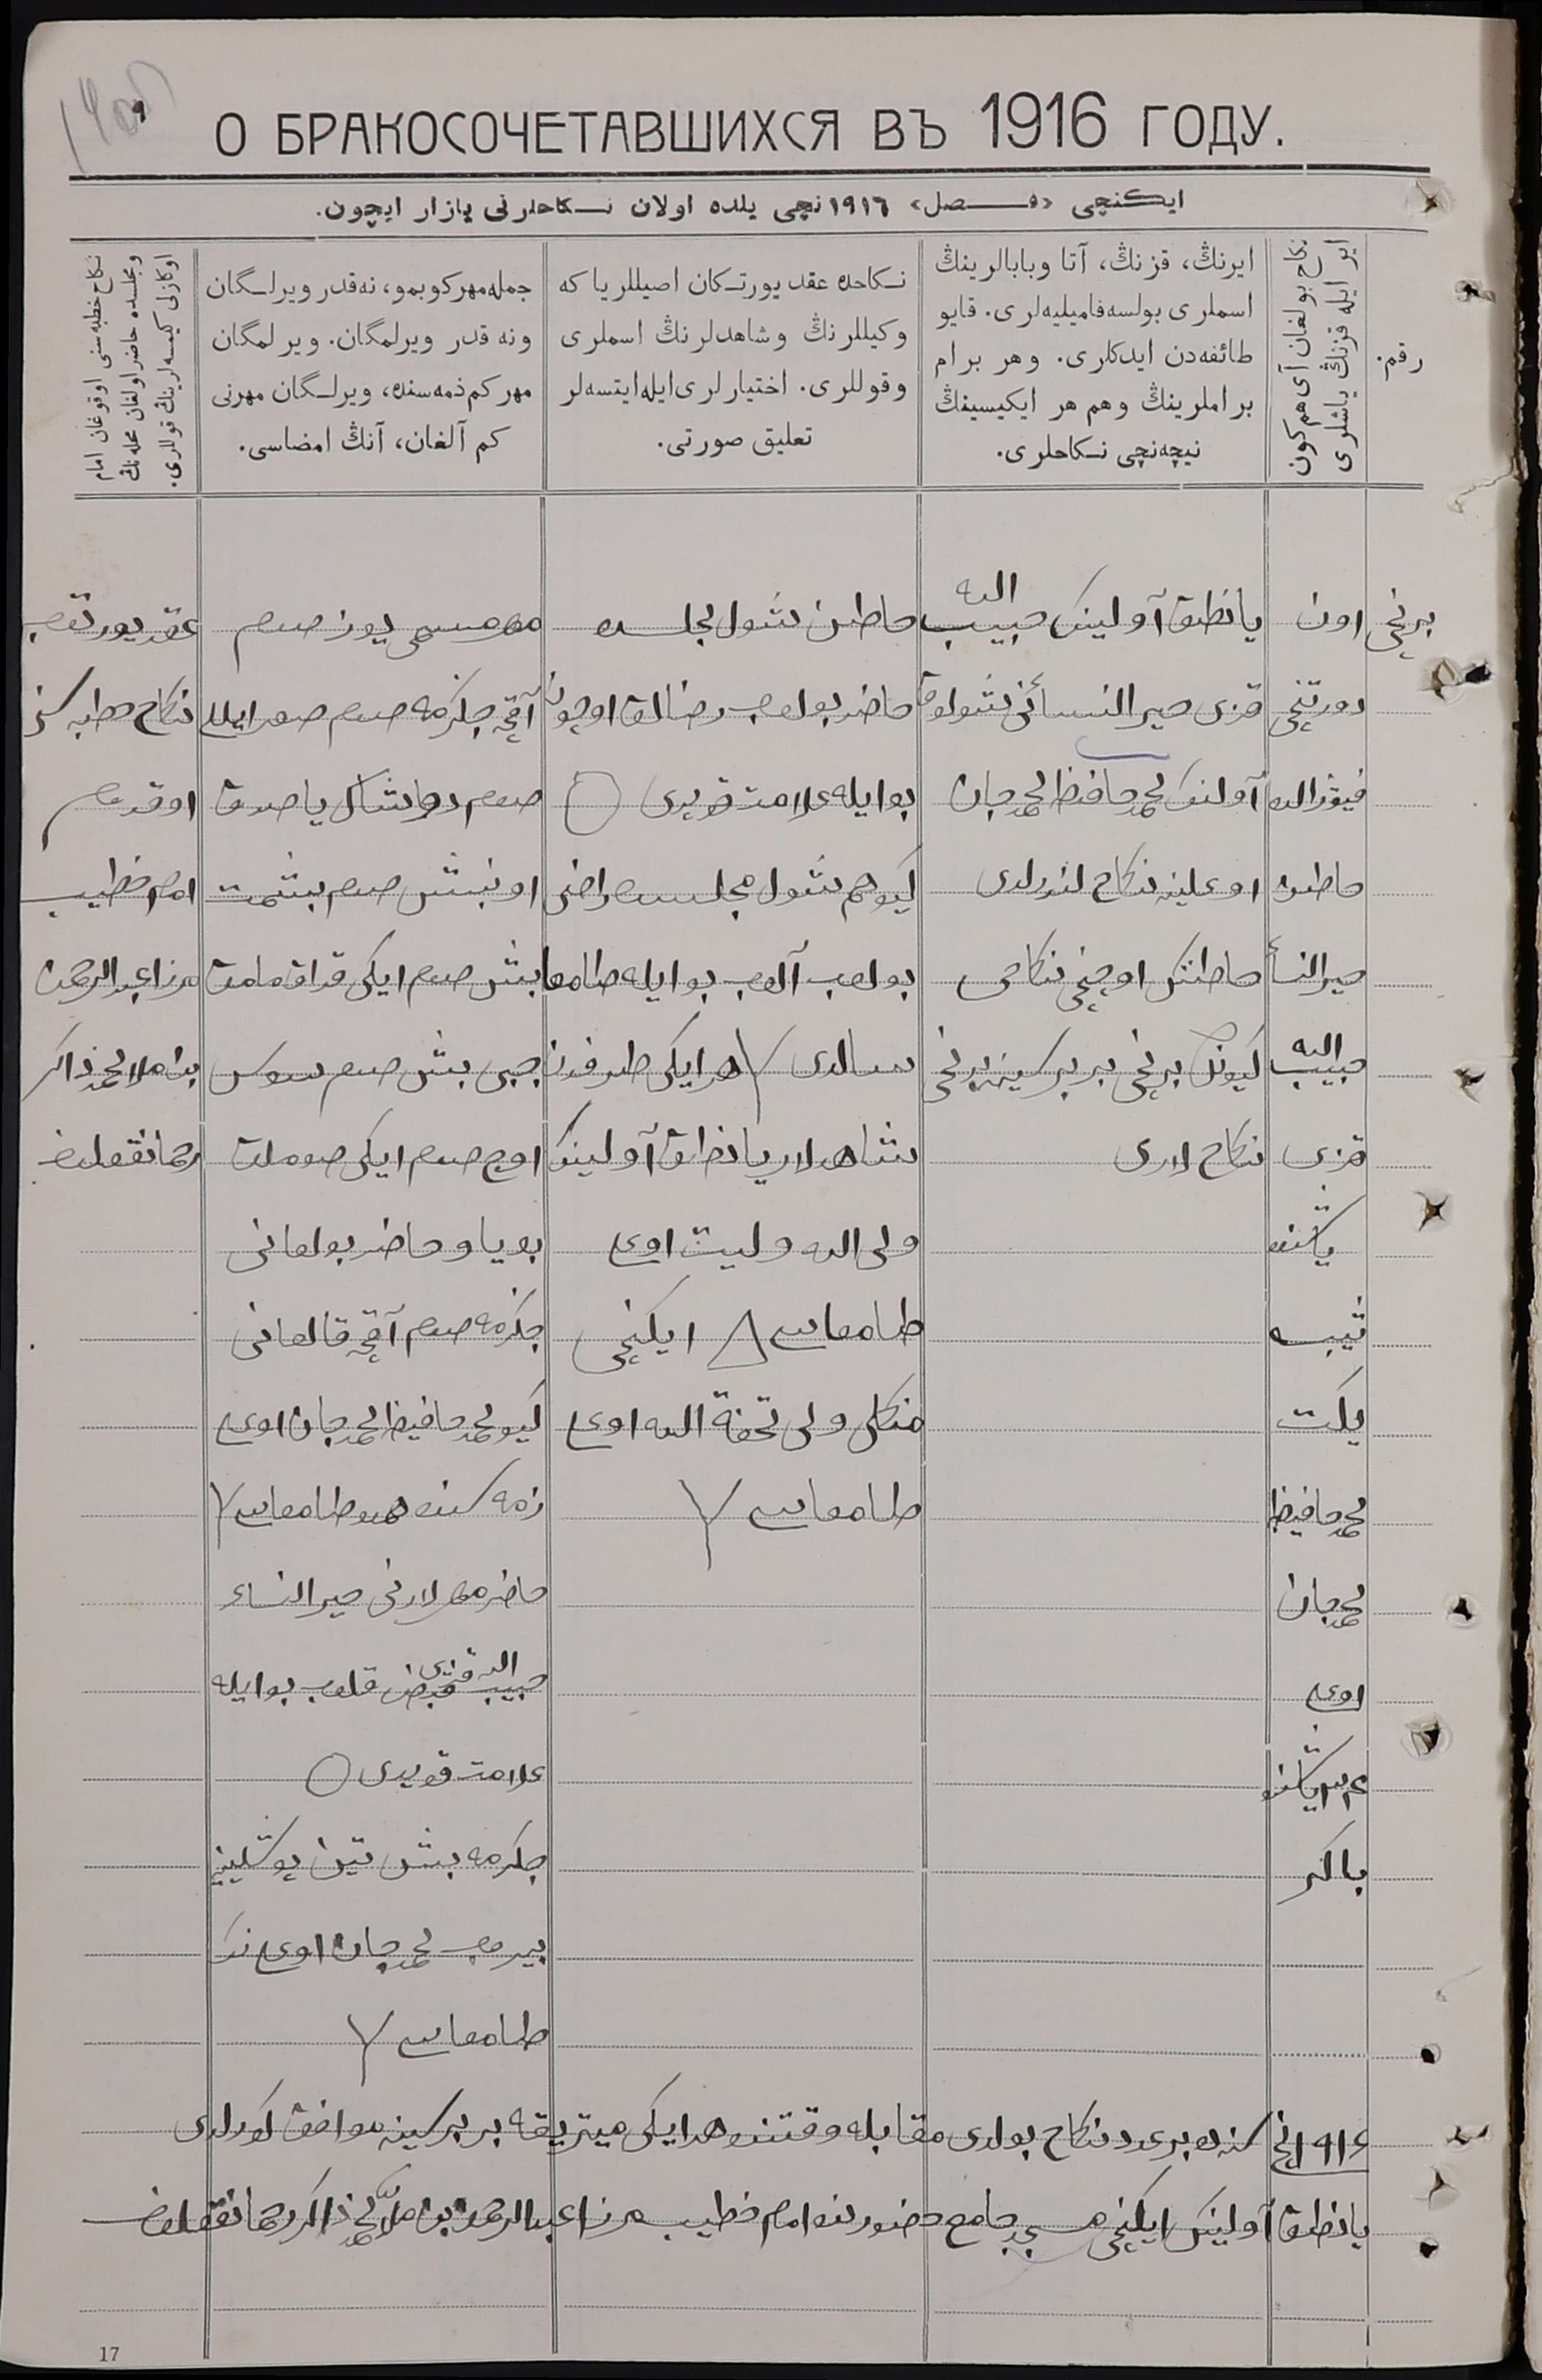 О БРАКОСОЧЕТАВШИХСЯ ВЪ 1916 ГОДУ.
ایکنچی «فصل» ١٩١٦ نچی یلده اولان نکاحلرنی یازار ایچون.
رقم.
نکاح بولغان آی هم کون
ایر ایله قزنڭ یاشلری
ایرنڭ، قزنڭ، آتا وبابالرینڭ
اسملری بولسه فامیلیه‌لری. قایو
طائفه‌دن ایدکلری. وهر برام
براملرینڭ وهم هر ایکیسینڭ
نیچه‌نچی نکاحلری.
نکاحده عقد یورتکان اصیللر یا که
وکیللرنڭ وشاهدلرنڭ اسملری
وقوللری. اختیارلری ایله ایتسه‌لر
تعلیق صورتی.
جمله مهر کوبمو، نه‌قدر ویرلگان
ونه قدر ویرلمگان. ویرلمگان
مهر کم ذمه‌سنده، ویرلگان مهرنی
کم آلغان، آنڭ امضاسی.
نکاح خطبه‌سنی اوقوغان امام
ومجلسده حاضر اولغان محله‌نڭ
اوکازلی کیمسه‌لرینڭ قوللری.
برنچی
اون
دورتنچی
خاطن
خیرالنسأ
حبیب الله
قزی
یاشنده
یکت
محمد حافیظ
محمد جان
اوغلی
باکر
یانطق آولینک حبیب الله
قزی خیرالنسائنی شولوق
آولنک محمد حافیظ محمد جان
اوغلینه نکاح لندرلدی
خاطننک اوچنچی نکاحی
کیونک برنچی بر برسینه برنچی
نکاح لاری
خاطن شول مجلسده
حاضر بولوب رضالق اوچون
بو ایله علامت قویدی
کیو هم شول مجلسده راضی
بولوب آلوب بو ایله طامغا
سالدی هر ایکی طرفدن
شاهدلار یانطق آولینک
ولی الله ولیت اوغلی
طامغاسی ایکنچی
منکلی ولی تحفة الله اوغلی
طامغاسی
مهر مسمی یوز صوم
آقچه جکرمه صوم
اونبش صوم بشمت
بش صوم ایکی
جبی بش صوم
اوچ صوم ایکی
بویاو حاضر بولغانی
جکرمه صوم آقچه قالغانی
کیو محمد حافیظ محمد جان اوغلی
ذمه سنده طامغاسی
حاضر مهرلارنی خیرالنساء
حبیب الله قزی قبض قلوب بو ایله
علامت قویدی
جکرمه بش تین پوشلینه
بیروب محمد جان اوغلی نک
طامغاسی
عقد یورتوب
نکاح خطبه سنی
اوقودم
امام خطیب
مرزا عبدالرحمن
بن ملا محمد ذاکر
رحمانقلوف
١٩١٦ نچی سنه ده بر عدد نکاح بولدی مقابله وقتنده هر ایکی میتریقه بر برسینه موافق کورلدی
یانطق آولینک ایکنچی مسجد جامع حضورنده امام خطیب مرزا عبدالرحمن بن ملا محمد ذاکر رحمانقلوف
17